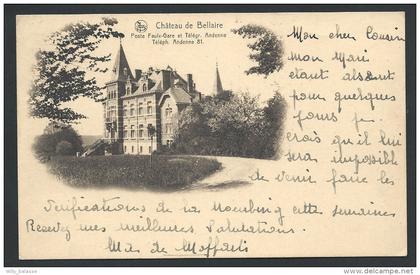 Château de Bellaire
Poste Faulx-Gare et Télégr. Andenne
Téléph. Andenne 81.
Mon cher Cousin
Mon Mari
étant absent
pour quelques
jours je
crois qu'il lui
sera impossible
de venir faire les
Vérifications de la Houbing cette semaines
Recevez mes meilleures Salutations.
M de Moffarts